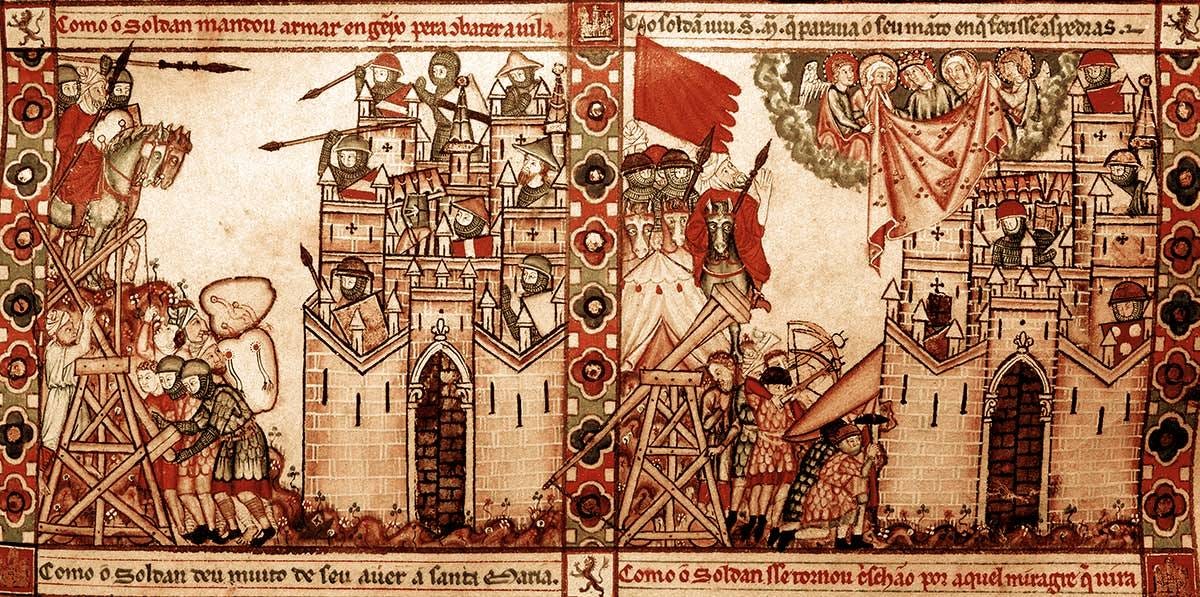 Como o Soldan mandou armar engẽyo pera cõbater a uila.
C̃o o soldã uiu S. M. q̃ paraua o seu mãto en q̃ ferisse as pedras.
Como o Soldan deu muito de seu auer a santa Maria.
Como o Soldan sse tornou c̃schão por aquel miragre q̃ uira